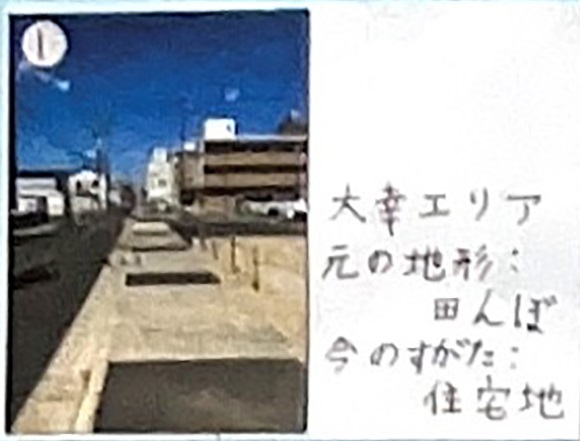 1
大幸エリア
元の地形:
田んぼ
今のすがた:
住宅地